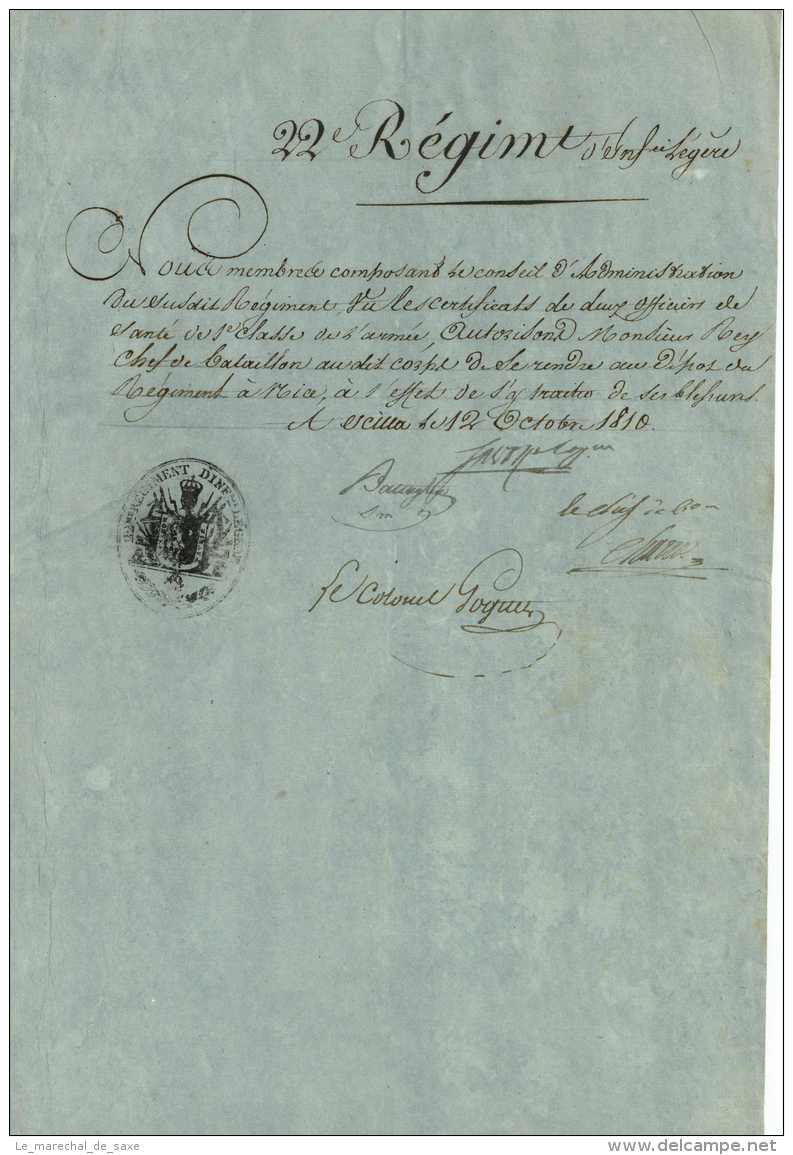 22e Régimt d'Infie Légère
Nous membres composant le conseil d'Administration
du susdit Régiment, Vu les certificats de deux officiers de
santé de 1e classe de l'armée, Autorisons Monsieur Rey
Chef de Bataillon au dit corps de se rendre au dépôt du
Régiment à Nice, à l'effet de s'y traiter de ses blessures.
A Scilla le 12 Octobre 1810.
REGIMENT D'INFie LEGERE
le chef de Bon
Le Colonel Goguet
Le_marechal_de_saxe
delcampe.net